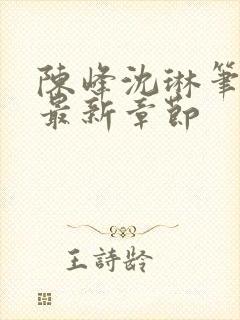 陳峰沈琳筆
最新章節
王詩齡